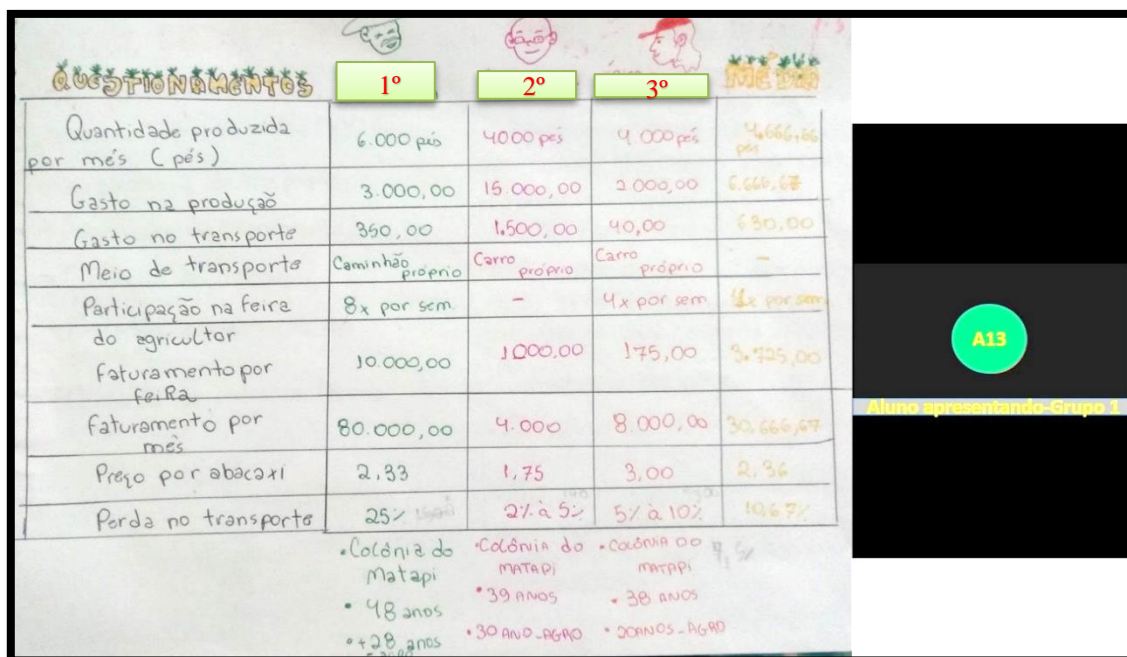 QUESTIONAMENTOS 1º 2º 3º MÉDIA
Quantidade produzida
por mês (pés) 6.000 pés 4000 pés 4.000 pés 4.666,66
pés
Gasto na produção 3.000,00 15.000,00 2.000,00 6.666,67
Gasto no transporte 350,00 1.500,00 40,00 630,00
Meio de transporte Caminhão próprio Carro próprio Carro próprio -
Participação na feira 8x por sem. - 4x por sem 4x por sem
do agricultor
faturamento por
feiRa 10.000,00 1000,00 175,00 3.725,00
faturamento por
mês 80.000,00 4.000 8.000,00 30.666,67
Preço por abacaxi 2,33 1,75 3,00 2,36
Perda no transporte 25% 2% à 5% 5% à 10% 10,67%
•Colônia do •COLÔNIA do •COLÔNIA DO
Matapi MATAPi MATAPi
• 48 anos •39 ANOS • 38 ANOS
•+28 anos •30 ANO-AGRO • 20ANOS-AGRO
A13
Aluno apresentando-Grupo 1